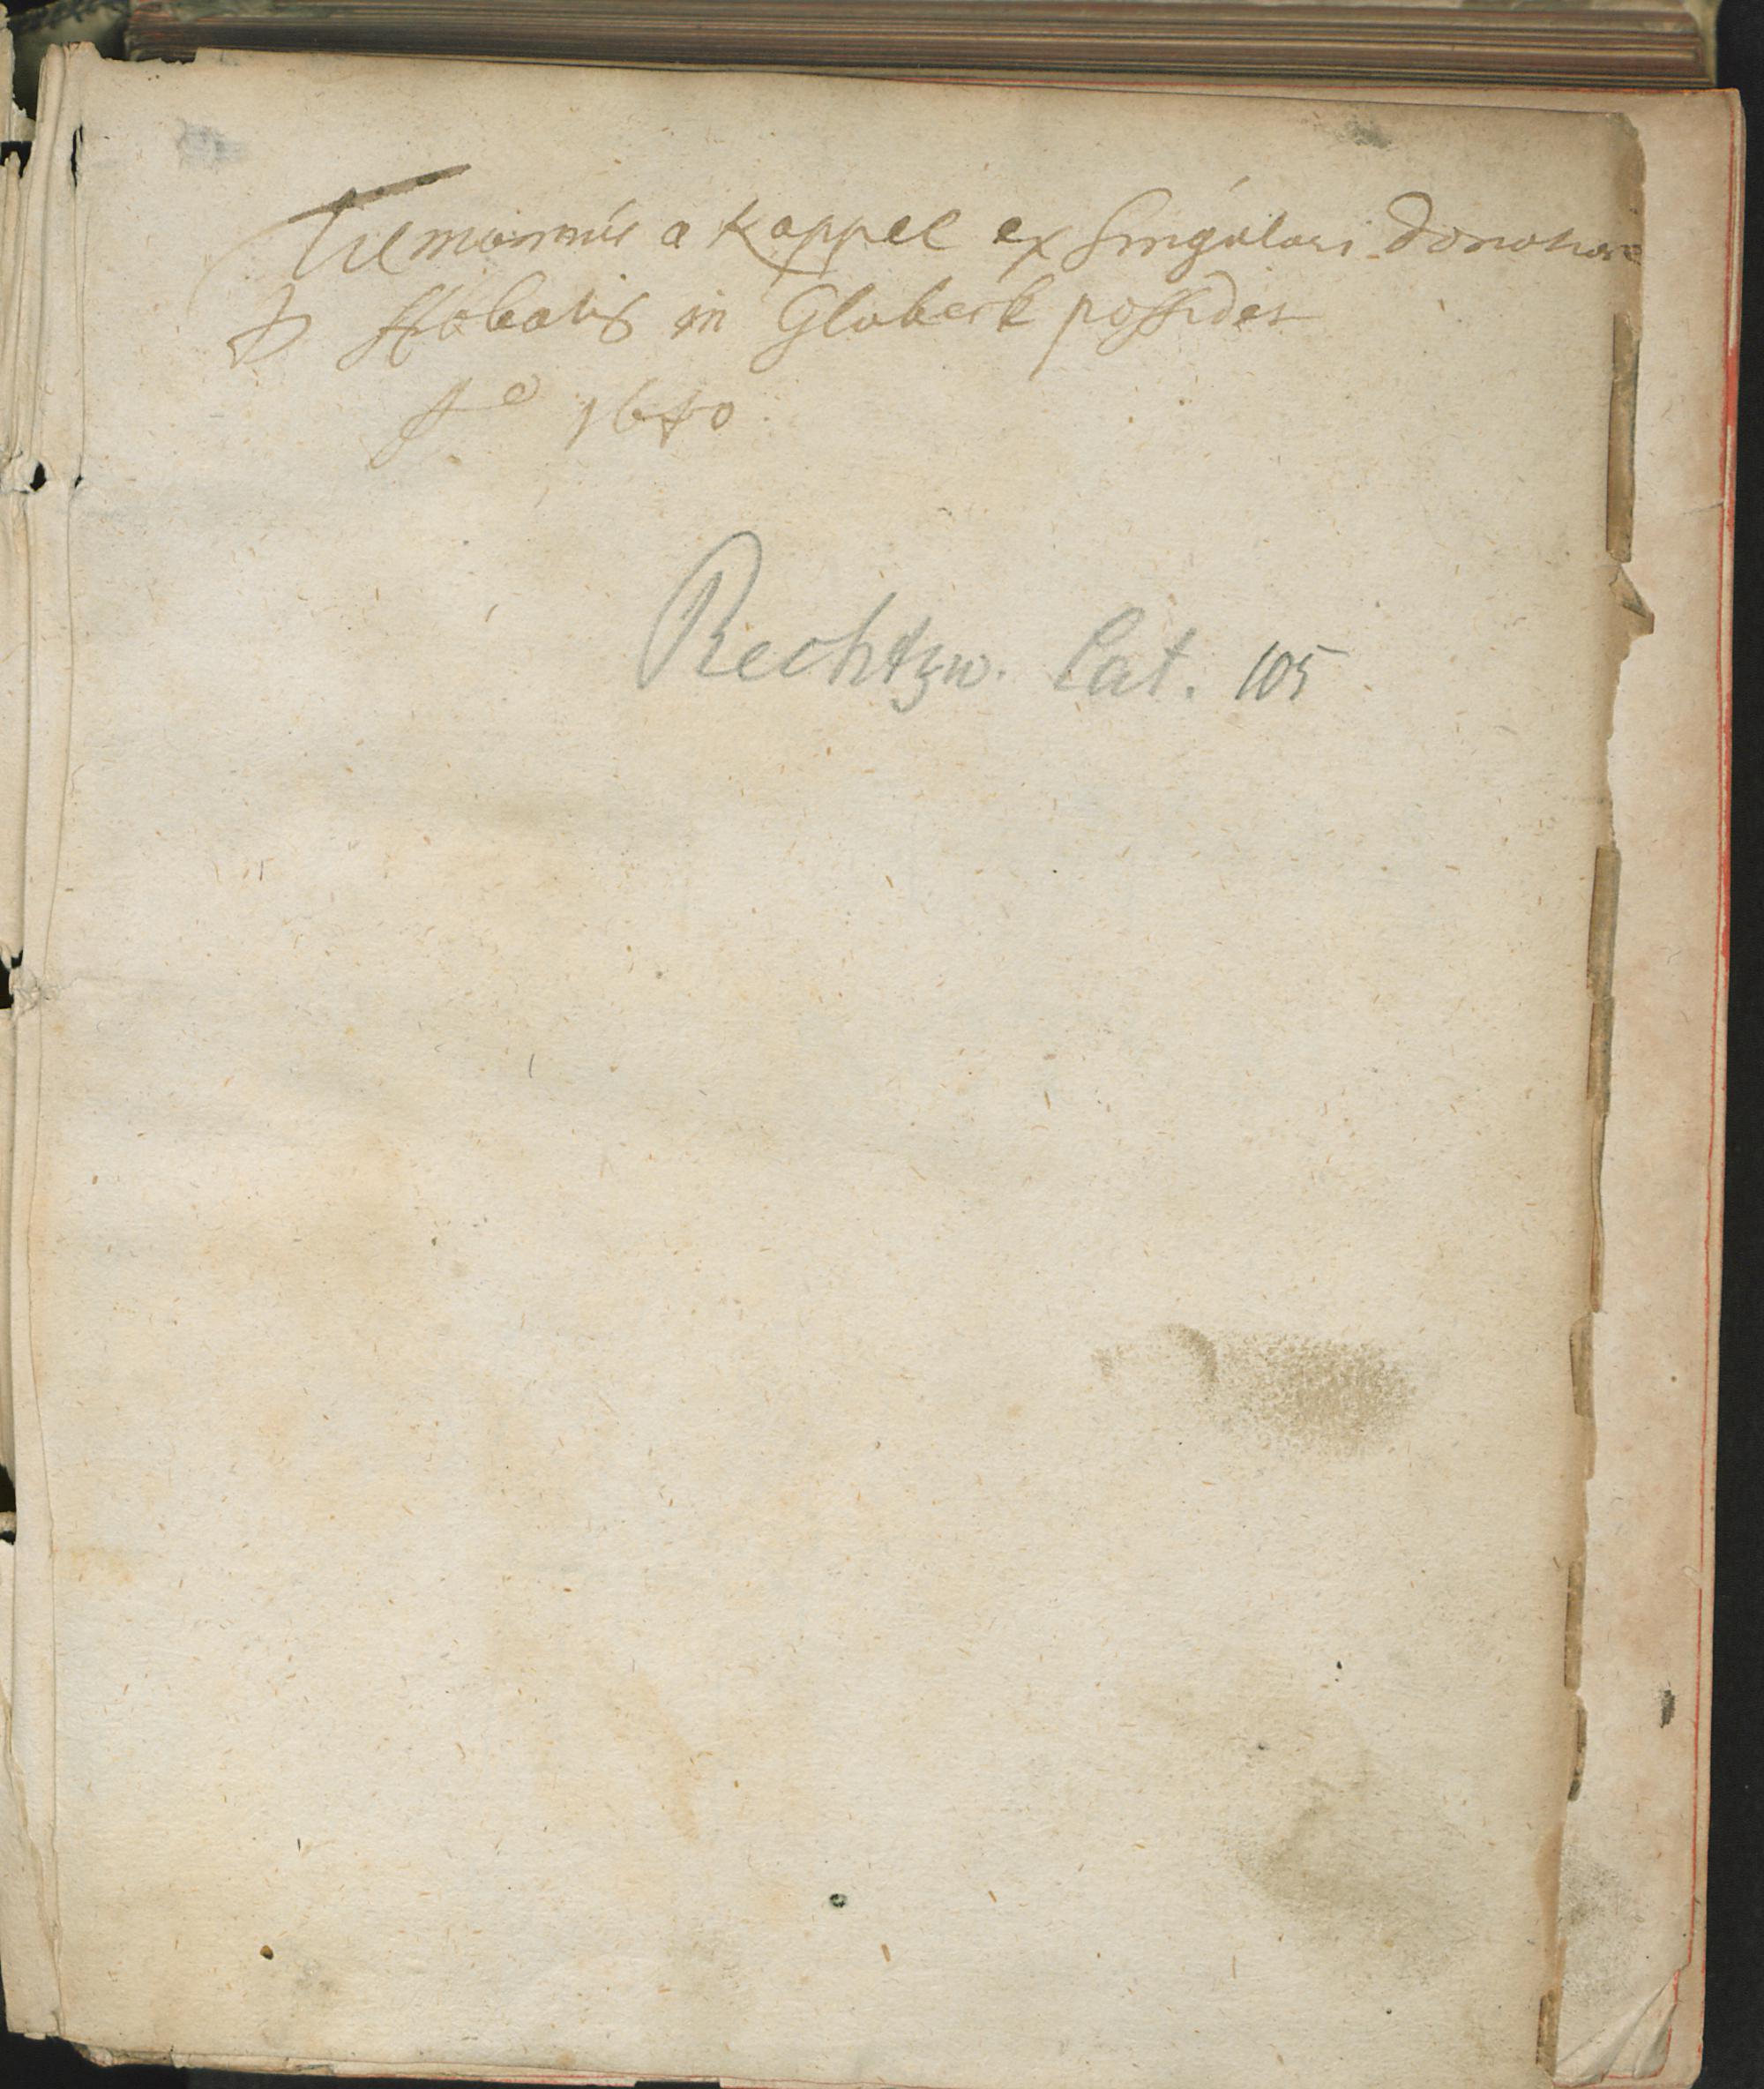 Tilmannus a Kappel ex singulari donatione
D Abbatis in Glabeck possidet
Ao 1640
Rechtzw. Cat. 105